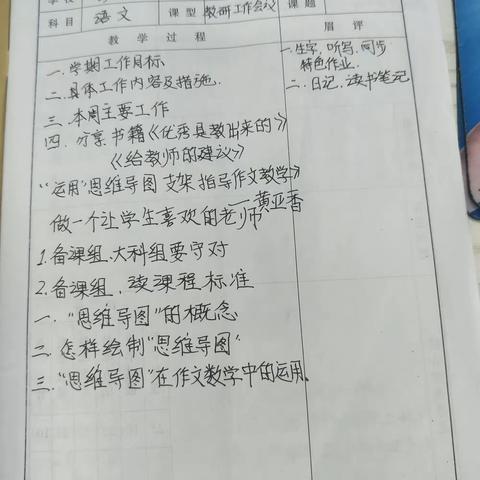 科目 语文 课型 教研工作会议 课题
教学过程 眉评
一.学期工作目标
二.具体工作内容及措施.
三.本周主要工作
四.分享书籍《优秀是教出来的》
《给教师的建议》
“运用”思维导图 支架指导作文教学》
——黄亚香
做一个让学生喜欢的老师
1.备课组.大科组要守对
2.备课组、读课程标准
一.“思维导图”的概念
二.怎样绘制“思维导图”
三.“思维导图”在作文教学中的运用.
一.生字,听写,同步
特色作业.
二.日记、读书笔记